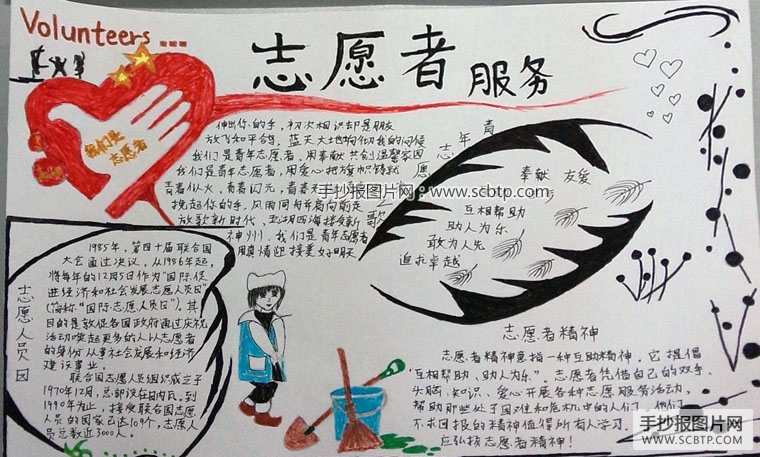 Volunteers
志愿者
服务
我们是
志愿者
伸出你的手，初次相识却是朋友
放飞和平鸽，蓝天大地响彻我的问候
我们是青年志愿者，用奉献共创温馨家园
我们是青年志愿者，用爱心把旗帜铸就
青春似火，青春闪光，青春无
挽起你的手，风雨同舟并肩向前走
放歌新时代，五湖四海接受新
神州，我们是青年志愿者
用真情迎接美好明天
青年志愿
歌
奉献 友爱
互相帮助
助人为乐
敢为人先
追求卓越
手抄报图片网：www.scbtp.com
志愿人员
1985年，第四十届联合国
大会通过决议，从1986年起，
将每年的12月5日作为“国际促
进经济和社会发展志愿人员日”
(简称“国际志愿人员日”)。其
目的是敦促各国政府通过庆祝
活动唤起更多的人以志愿者
的身份从事社会发展和经济
建设事业。
联合国志愿人员组织成立于
1970年12月，总部设在日内瓦，到
1990年为止，接受联合国志愿
人员的国家已达109个，志愿人
员总数近3000人。
志愿者精神
志愿者精神意指一种互助精神，它提倡
“互相帮助、助人为乐”。志愿者凭借自己的双手、
头脑、知识、爱心开展各种志愿服务活动，
帮助那些处于困难和危机中的人们。他们
不求回报的精神值得所有人学习。
应弘扬志愿者精神！
手抄报图片网
WWW.SCBTP.COM